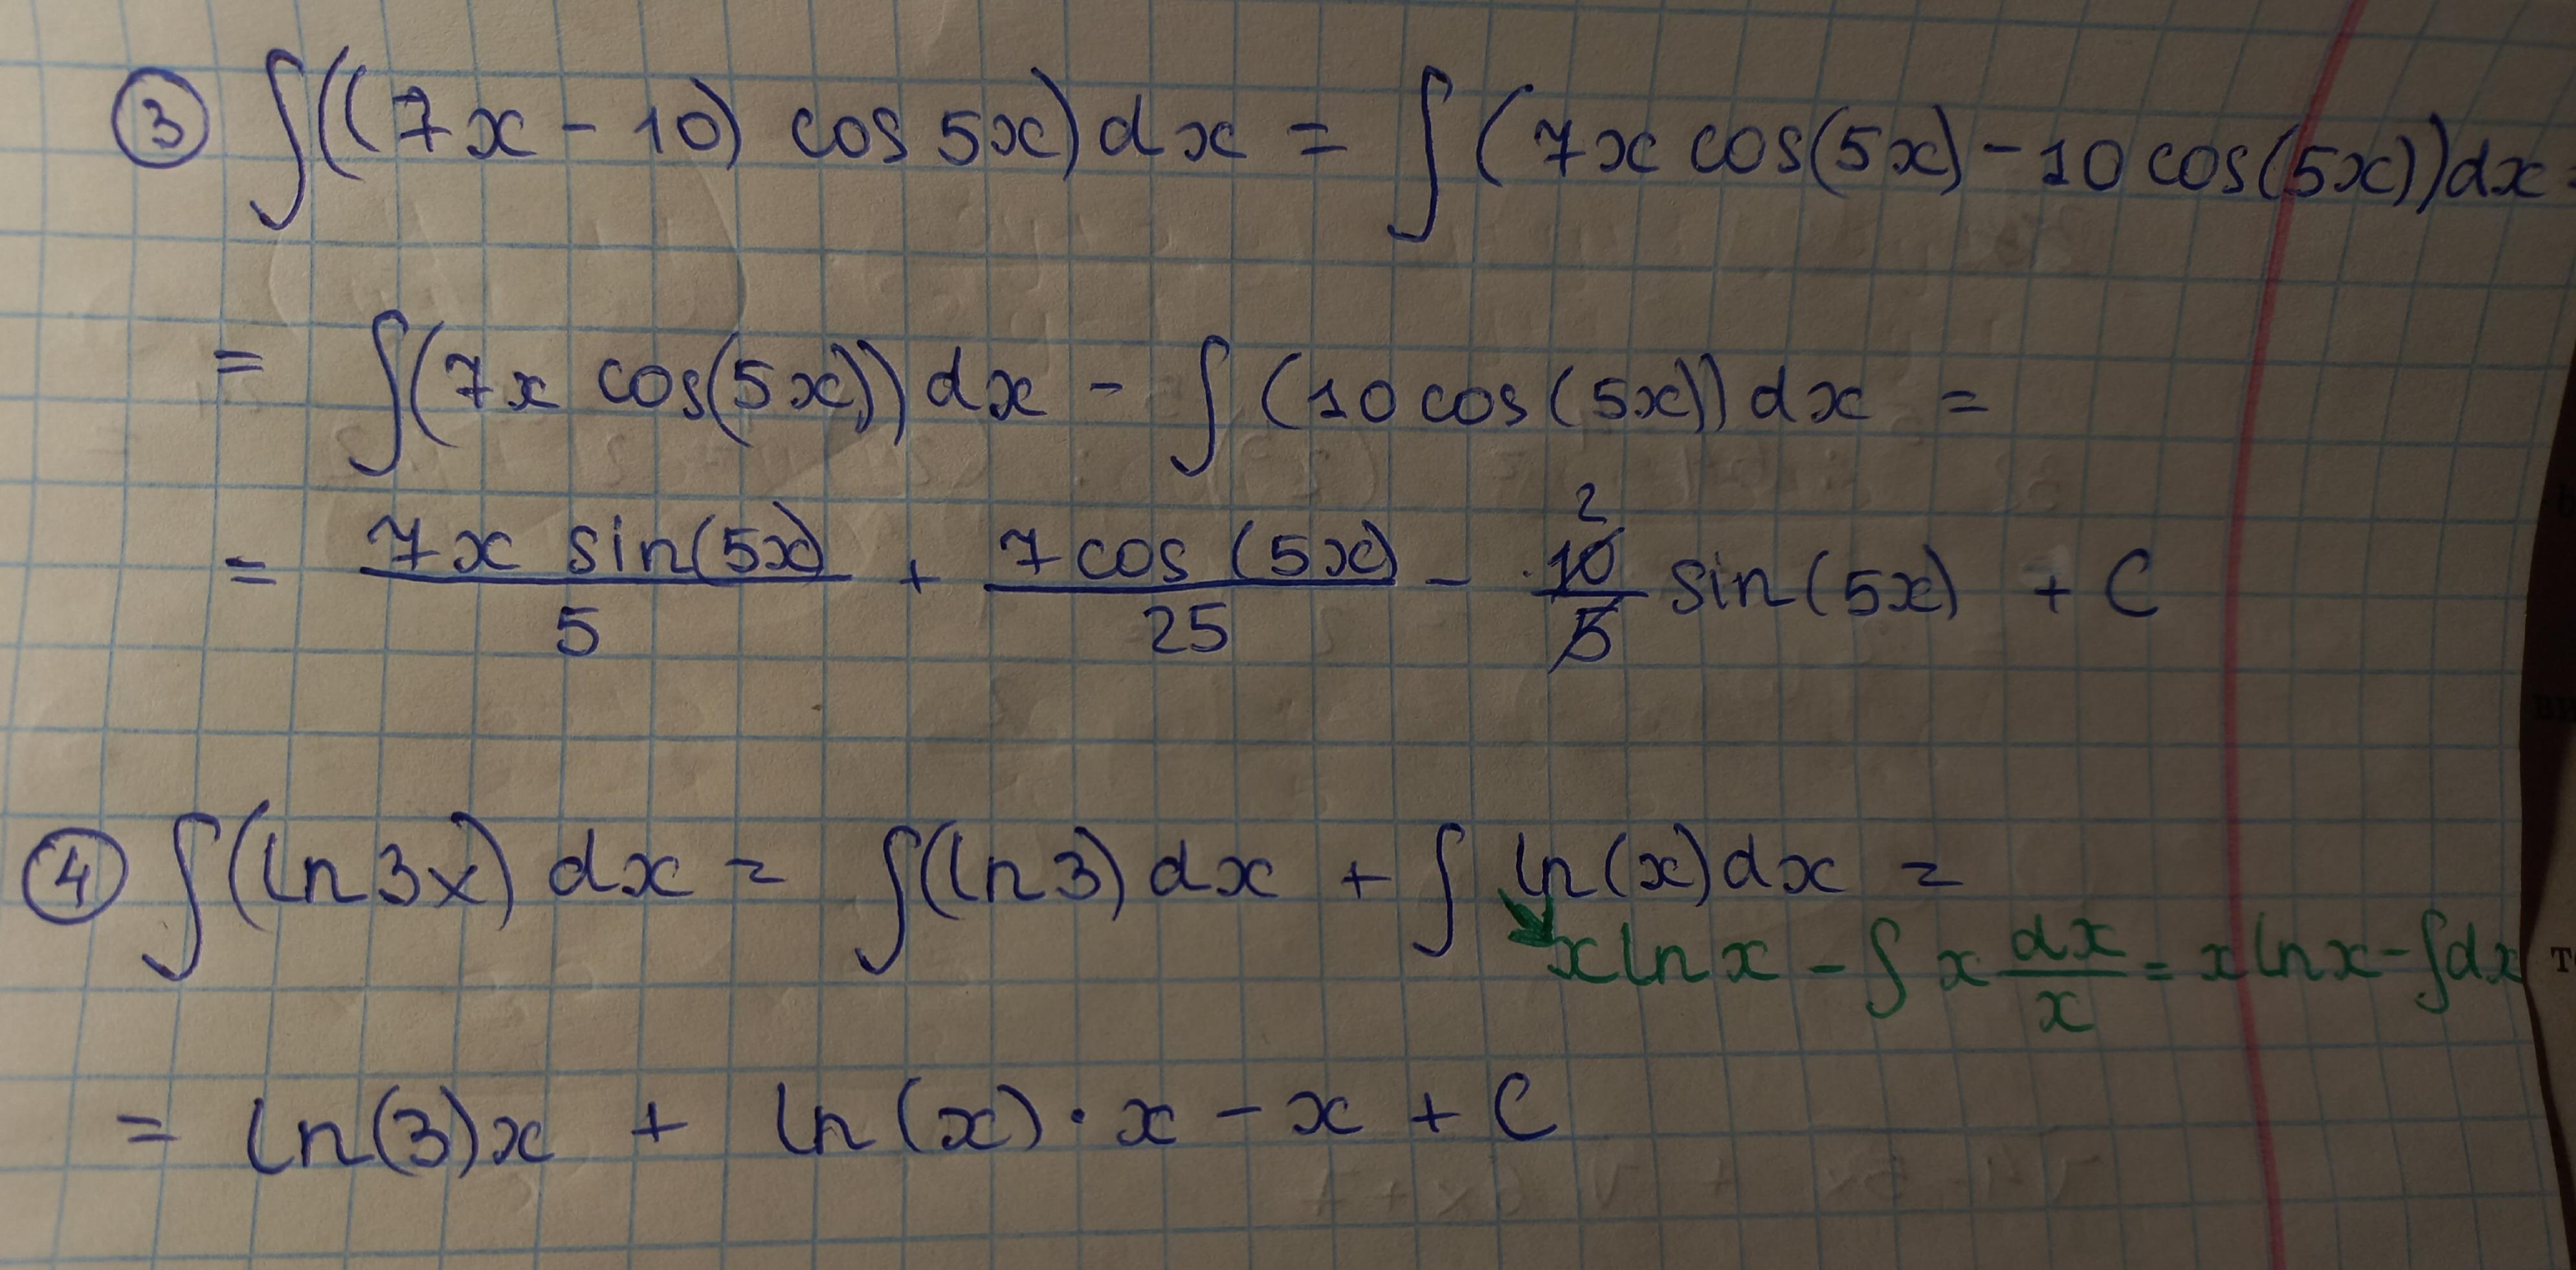 ③ ∫((7x - 10) cos 5x) dx = ∫(7x cos(5x) - 10 cos(5x)) dx =
= ∫(7x cos(5x)) dx - ∫(10 cos(5x)) dx =
= 7x sin(5x)/5 + 7 cos(5x)/25 - 10/5 2 sin(5x) + C
④ ∫(ln 3x) dx = ∫(ln 3) dx + ∫ ln(x) dx =
x ln x - ∫ x dx/x = x ln x - ∫dx
= ln(3)x + ln(x) · x - x + C